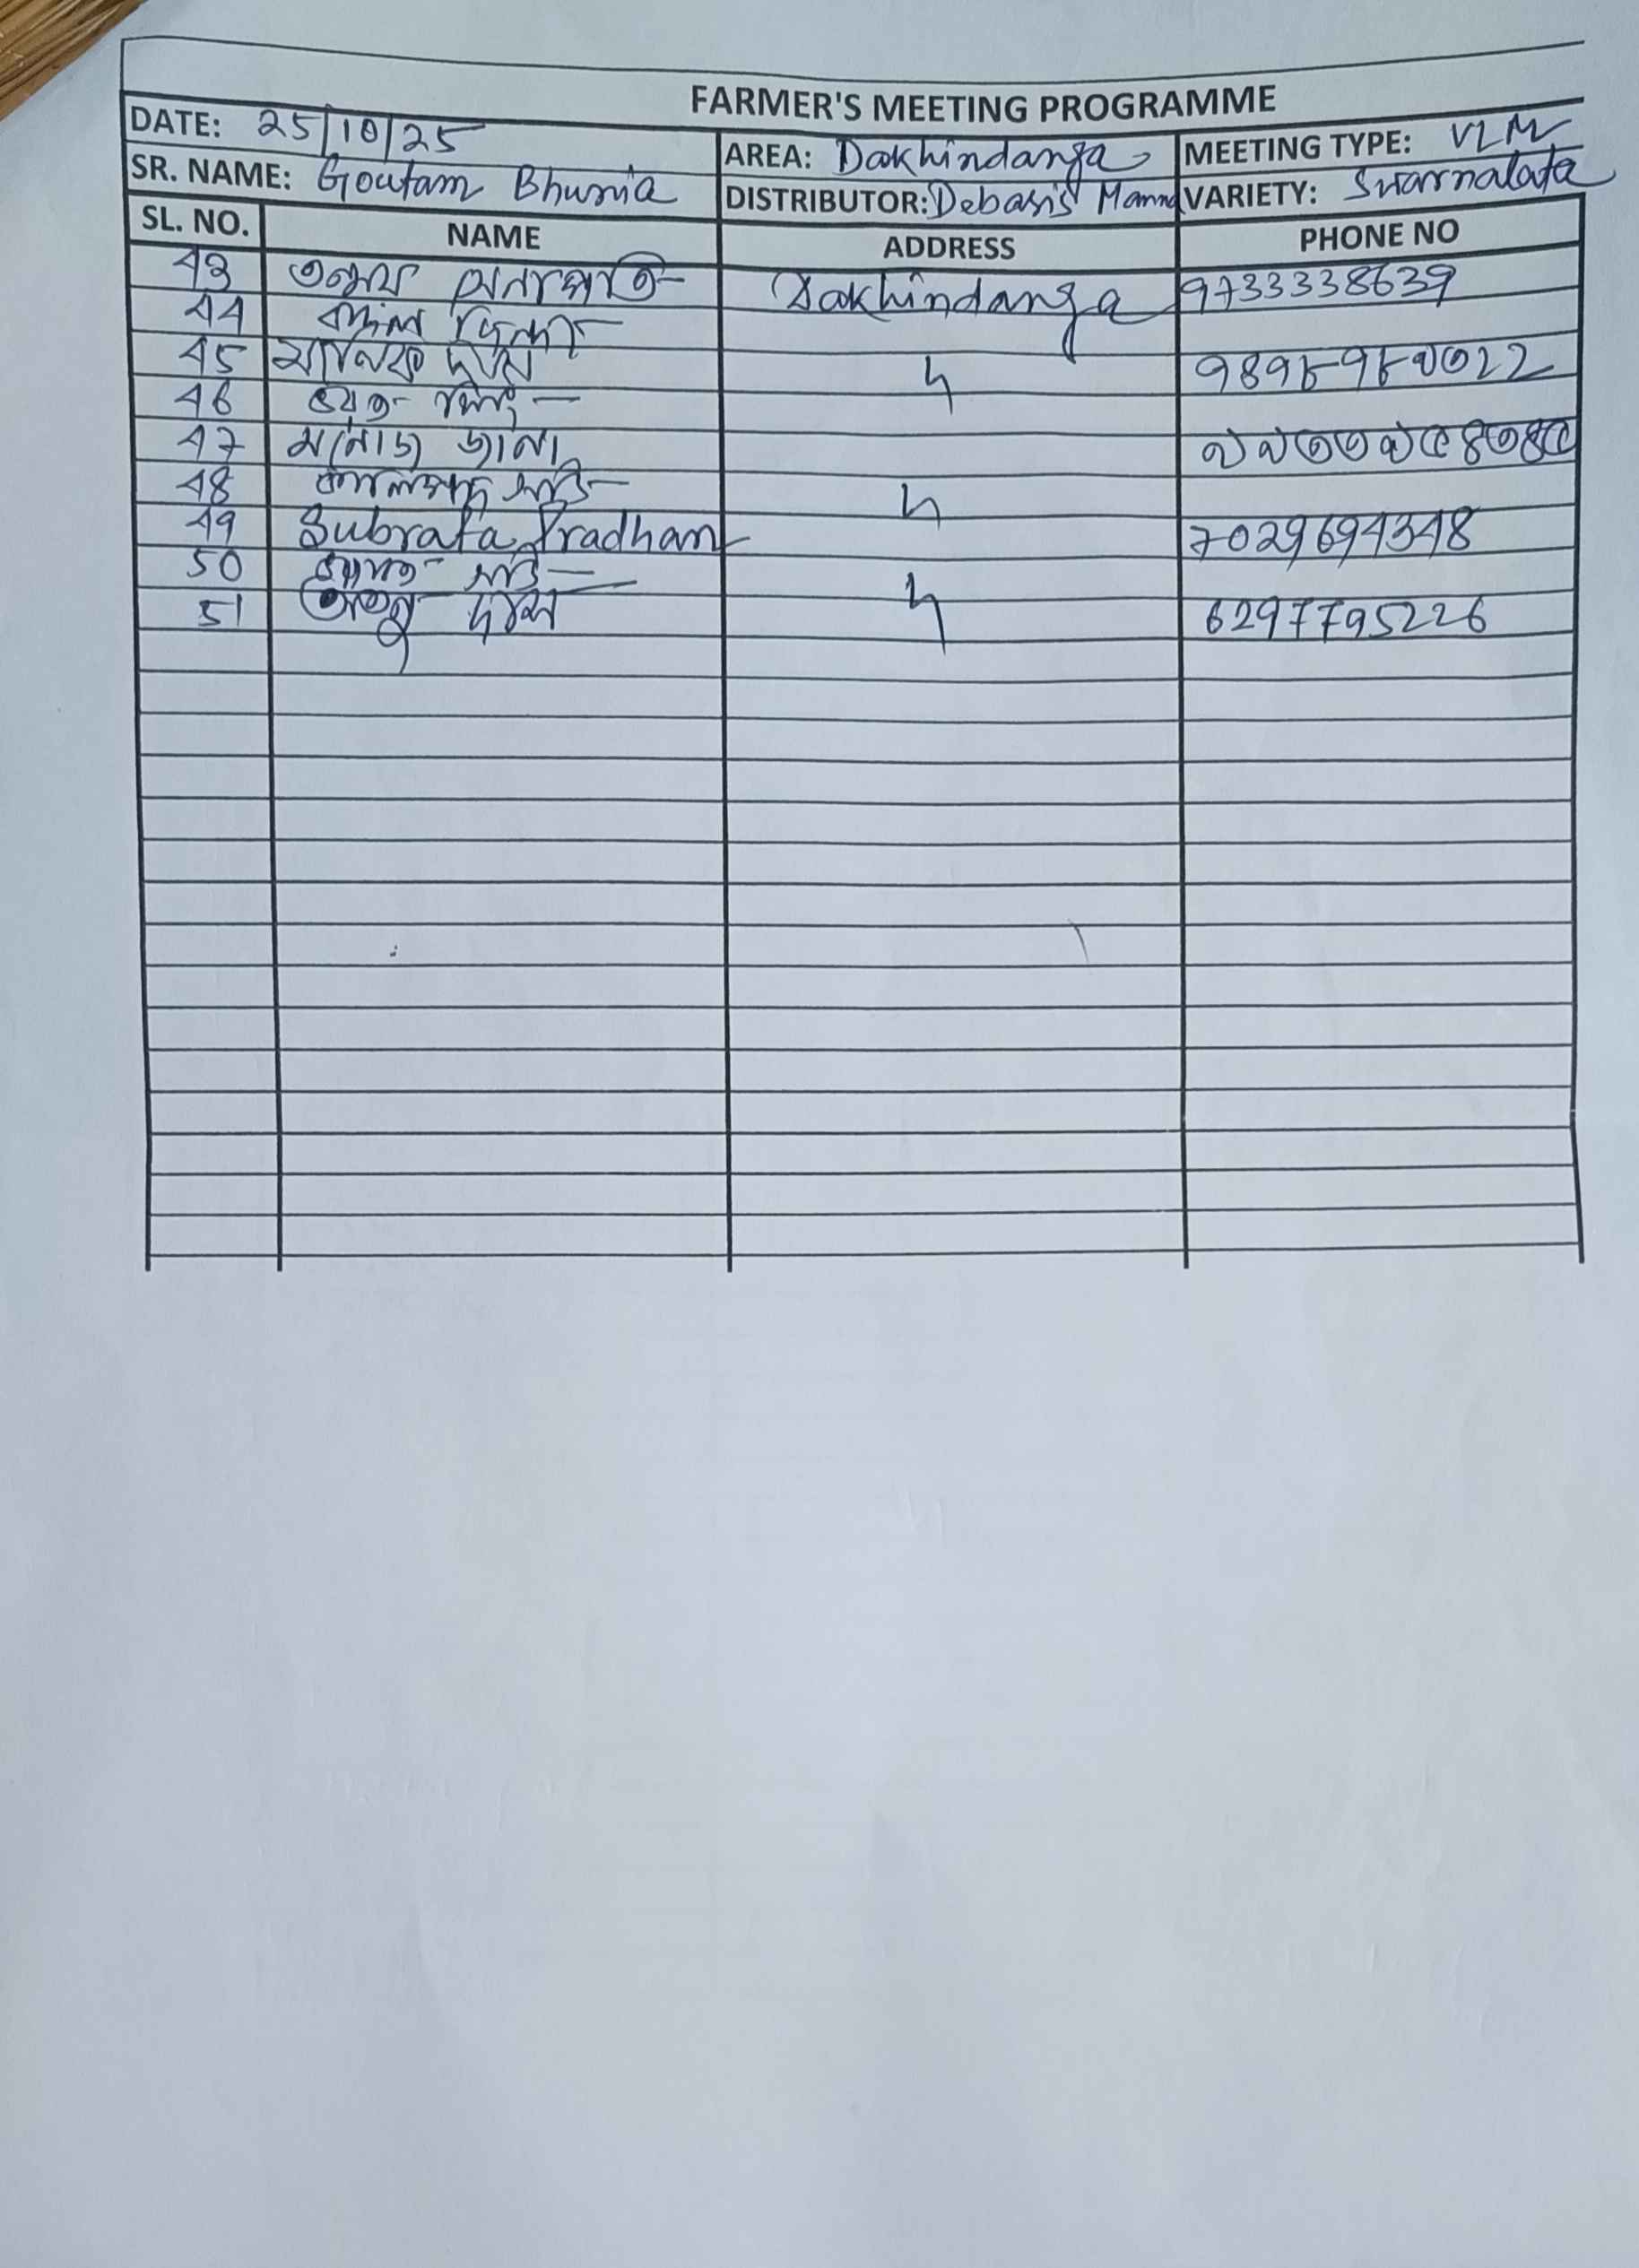 FARMER'S MEETING PROGRAMME
DATE: 25/10/25 AREA: Dakhindanga MEETING TYPE: VLM
SR. NAME: Goutam Bhunia DISTRIBUTOR: Debasis Manna VARIETY: Swarnalata
SL. NO. NAME ADDRESS PHONE NO
43 তন্ময় সেনাপতি Dakhindanga 9733338639
44
45 মানিক দাস 〃
46 জয়ন্ত সিং
47 মনোজ জানা
48 〃
49 Subrata Pradhan 7029694348
50
51 দাস 〃 6297795226